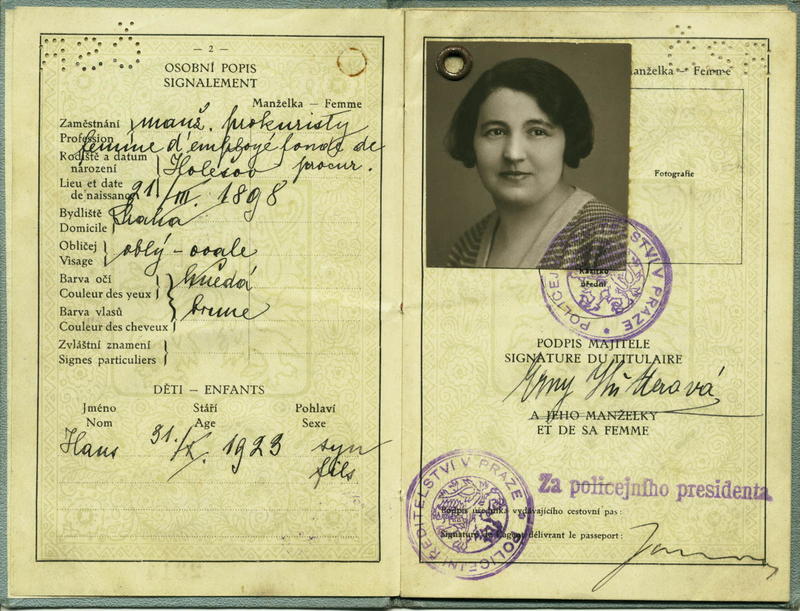 — 2 —
OSOBNÍ POPIS
SIGNALEMENT
Manželka — Femme
Zaměstnání manž. prokuristy
Profession femme d'employé fondé de
procur.
Rodiště a datum
narození Holešov
Lieu et date
de naissance 21/III. 1898
Bydliště Praha
Domicile
Obličej oblý - ovale
Visage
Barva očí hnědá
Couleur des yeux
Barva vlasů brune
Couleur des cheveux
Zvláštní znamení
Signes particuliers
DĚTI - ENFANTS
Jméno Stáří Pohlaví
Nom Age Sexe
Hans 31./X. 1923 syn
fils
Manželka — Femme
Fotografie
Razítko
úřední
POLICEJNÍ ŘEDITELSTVÍ V PRAZE
PODPIS MAJITELE
SIGNATURE DU TITULAIRE
A JEHO MANŽELKY
ET DE SA FEMME
Za policejního presidenta
Podpis úředníka vydávajícího cestovní pas:
Signature de l'agent délivrant le passeport:
POLICEJNÍ ŘEDITELSTVÍ V PRAZE